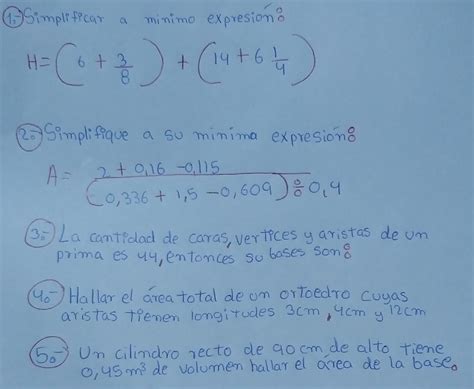 1.- Simplificar a minimo expresión:
H = (6 + 3/8) + (14 + 6 1/4)
2.- Simplifique a su minima expresión:
A = 2 + 0,16 - 0,115 / (0,336 + 1,5 - 0,609) ÷ 0,4
3.- La cantidad de caras, vertices y aristas de un
prima es 44, entonces su bases son:
4.- Hallar el área total de un ortoedro cuyas
aristas tienen longitudes 3cm, 4cm y 12cm
5.- Un cilindro recto de 90 cm, de alto tiene
0,45 m³ de volumen hallar el área de la base.